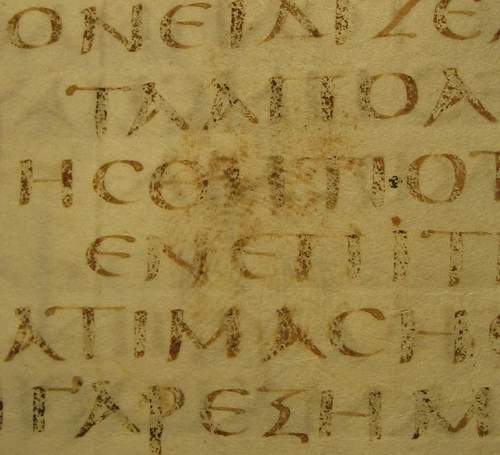 ΟΝΕΙΔΙΖΕΑ
ΤΑΑΠΟΑ
ΗϹΘΗΤΙΟΤ
ΕΝΕΠΙΤΙ
ΑΤΙΜΑϹΗϹ
ΙΓΑΡΕΞΗΜ